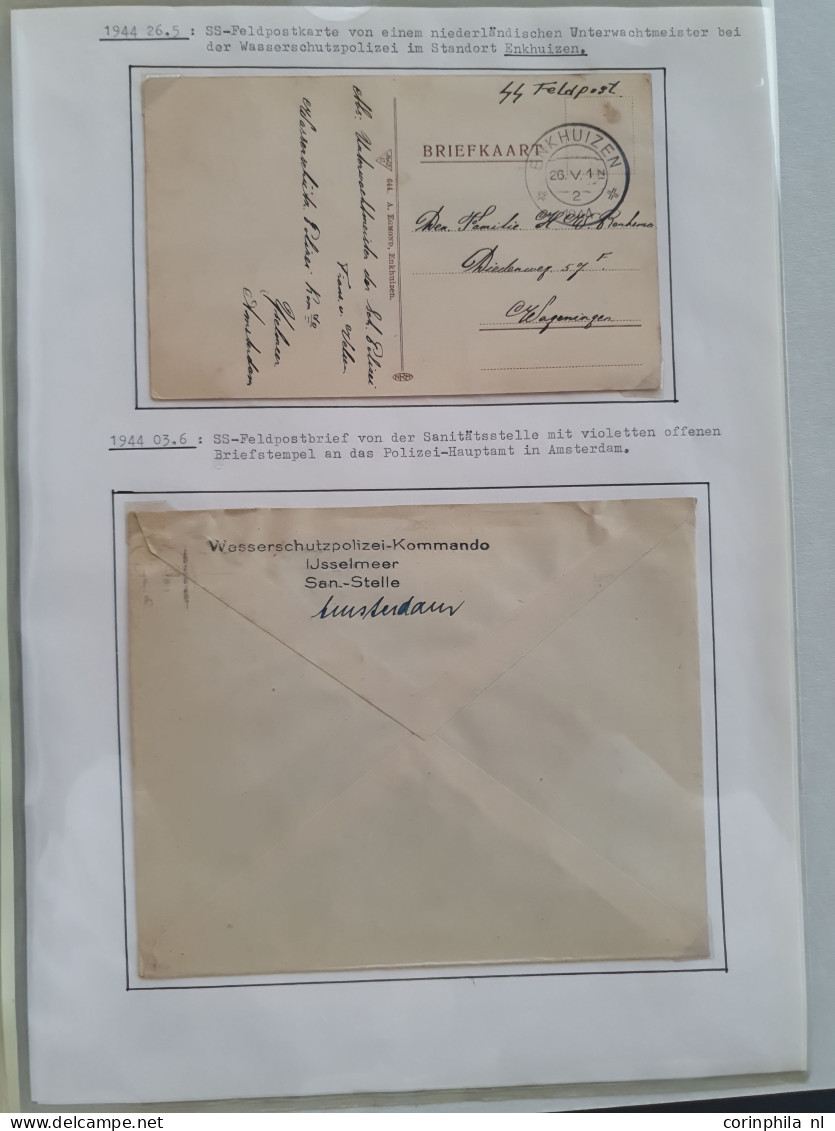 1944 26.5 : SS-Feldpostkarte von einem niederländischen Unterwachtmeister bei
der Wasserschutzpolizei im Standort Enkhuizen.
SS Feldpost
BRIEFKAART
ENKHUIZEN
26.V.1
2
Den Familie H.
Diedenweg 57 F
Wageningen
644. A. EGMOND, Enkhuizen.
Abs: Unterwachtmeister der Sch. Polizei
Frans v.
Wasserschutz Polizei
Yselmeer
Amsterdam
1944 03.6 : SS-Feldpostbrief von der Sanitätsstelle mit violetten offenen
Briefstempel an das Polizei-Hauptamt in Amsterdam.
Wasserschutzpolizei-Kommando
IJsselmeer
San.-Stelle
Amsterdam
corinphila nl